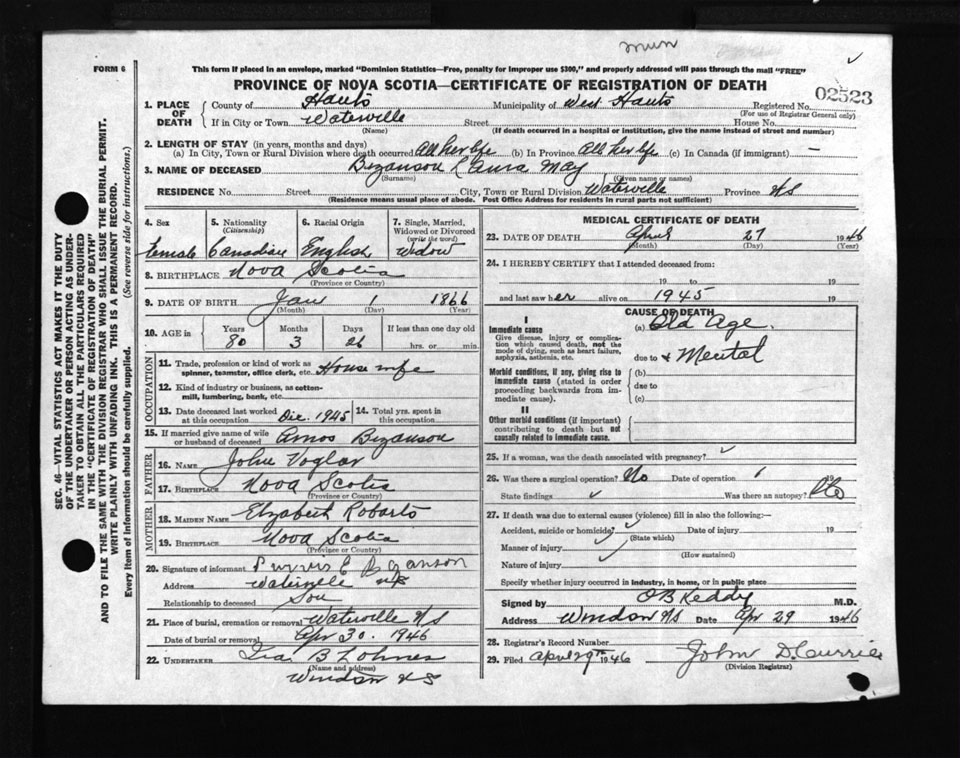 mun
FORM 6
This form if placed in an envelope, marked "Dominion Statistics—Free, penalty for improper use $300," and properly addressed will pass through the mail "FREE"
PROVINCE OF NOVA SCOTIA—CERTIFICATE OF REGISTRATION OF DEATH
02523
1. PLACE OF DEATH
County of Hants Municipality of West Hants Registered No.
(For use of Registrar General only)
If in City or Town Waterville Street House No.
(Name) (If death occurred in a hospital or institution, give the name instead of street and number)
2. LENGTH OF STAY (in years, months and days)
(a) In City, Town or Rural Division where death occurred All her life (b) In Province All her life (c) In Canada (if immigrant) —
3. NAME OF DECEASED Bezanson Laura May
(Surname) (Given name or names)
RESIDENCE No. Street City, Town or Rural Division Waterville Province NS
(Residence means usual place of abode. Post Office Address for residents in rural parts not sufficient)
4. Sex Female
5. Nationality (Citizenship) Canadian
6. Racial Origin English
7. Single, Married, Widowed or Divorced (write the word) Widow
8. BIRTHPLACE Nova Scotia
(Province or Country)
9. DATE OF BIRTH Jan 1 1866
(Month) (Day) (Year)
10. AGE in Years 80 Months 3 Days 26 If less than one day old hrs. or min.
OCCUPATION
11. Trade, profession or kind of work as spinner, teamster, office clerk, etc. House wife
12. Kind of industry or business, as cotton-mill, lumbering, bank, etc.
13. Date deceased last worked at this occupation Dec. 1945 14. Total yrs. spent in this occupation
15. If married give name of wife or husband of deceased Amos Bezanson
FATHER
16. NAME John Voglar
17. BIRTHPLACE Nova Scotia
(Province or Country)
MOTHER
18. MAIDEN NAME Elizabeth Robarts
19. BIRTHPLACE Nova Scotia
(Province or Country)
20. Signature of informant Purvis E Bezanson
Address Waterville NS
Relationship to deceased Son
21. Place of burial, cremation or removal Waterville N/S
Date of burial or removal Apr 30. 1946
22. UNDERTAKER Ira B Lohnes
(Name and address)
Windsor NS
MEDICAL CERTIFICATE OF DEATH
23. DATE OF DEATH April 27 1946
(Month) (Day) (Year)
24. I HEREBY CERTIFY that I attended deceased from:
19 to 19
and last saw her alive on 1945 19
CAUSE OF DEATH
I
Immediate cause
Give disease, injury or complication which caused death, not the mode of dying, such as heart failure, asphyxia, asthenia, etc.
(a) Old Age.
due to & Mental
Morbid conditions, if any, giving rise to immediate cause (stated in order proceeding backwards from immediate cause).
(b)
due to
(c)
II
Other morbid conditions (if important) contributing to death but not causally related to immediate cause.
25. If a woman, was the death associated with pregnancy?
26. Was there a surgical operation? No Date of operation
State findings Was there an autopsy? No
27. If death was due to external causes (violence) fill in also the following:—
Accident, suicide or homicide? Date of injury 19
(State which)
Manner of injury
(How sustained)
Nature of injury
Specify whether injury occurred in industry, in home, or in public place
Signed by OB Keddy M.D.
Address Windsor N/S Date Apr 29 1946
28. Registrar's Record Number
29. Filed April 29th 1946 John D Currie
(Division Registrar)
SEC. 46—VITAL STATISTICS ACT MAKES IT THE DUTY
OF THE UNDERTAKER OR PERSON ACTING AS UNDER-
TAKER TO OBTAIN ALL THE PARTICULARS REQUIRED
IN THE "CERTIFICATE OF REGISTRATION OF DEATH"
AND TO FILE THE SAME WITH THE DIVISION REGISTRAR WHO SHALL ISSUE THE BURIAL PERMIT.
WRITE PLAINLY WITH UNFADING INK. THIS IS A PERMANENT RECORD.
Every item of information should be carefully supplied. (See reverse side for instructions.)